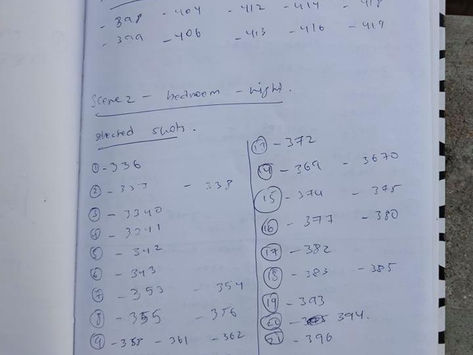 - 398 - 404 - 412 - 414 - 418
- 399 - 406 - 413 - 416 - 419
Scene 2 - bedroom - night.
selected shots.
① - 336
② - 337 - 338
③ - 3340
④ - 3341
⑤ - 342
⑥ - 343
⑦ - 353 - 354
⑧ - 355 - 356
⑨ - 358 - 361 - 362
- 372
⑭ - 369 - 3670
⑮ - 374 - 375
⑯ - 377 - 380
⑰ - 382
⑱ - 383 - 385
⑲ - 393
⑳ - 394.
㉑ - 396